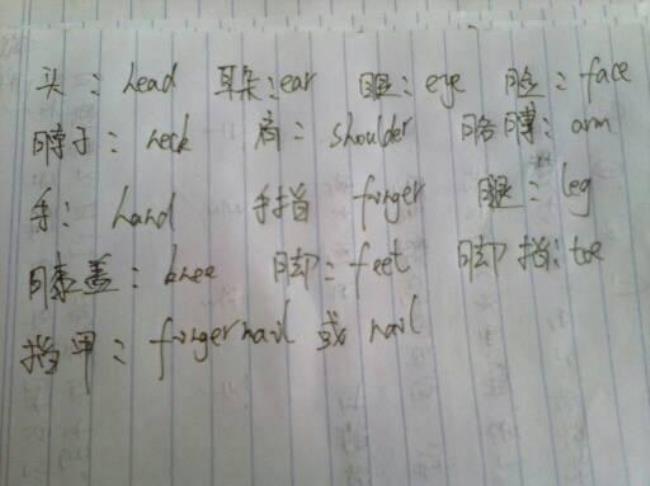 头：head 耳朵：ear 眼：eye 脸：face
脖子：neck 肩：shoulder 胳膊：arm
手：hand 手指 finger 腿：leg
膝盖：knee 脚：feet 脚指：toe
指甲：fingernail 或 nail